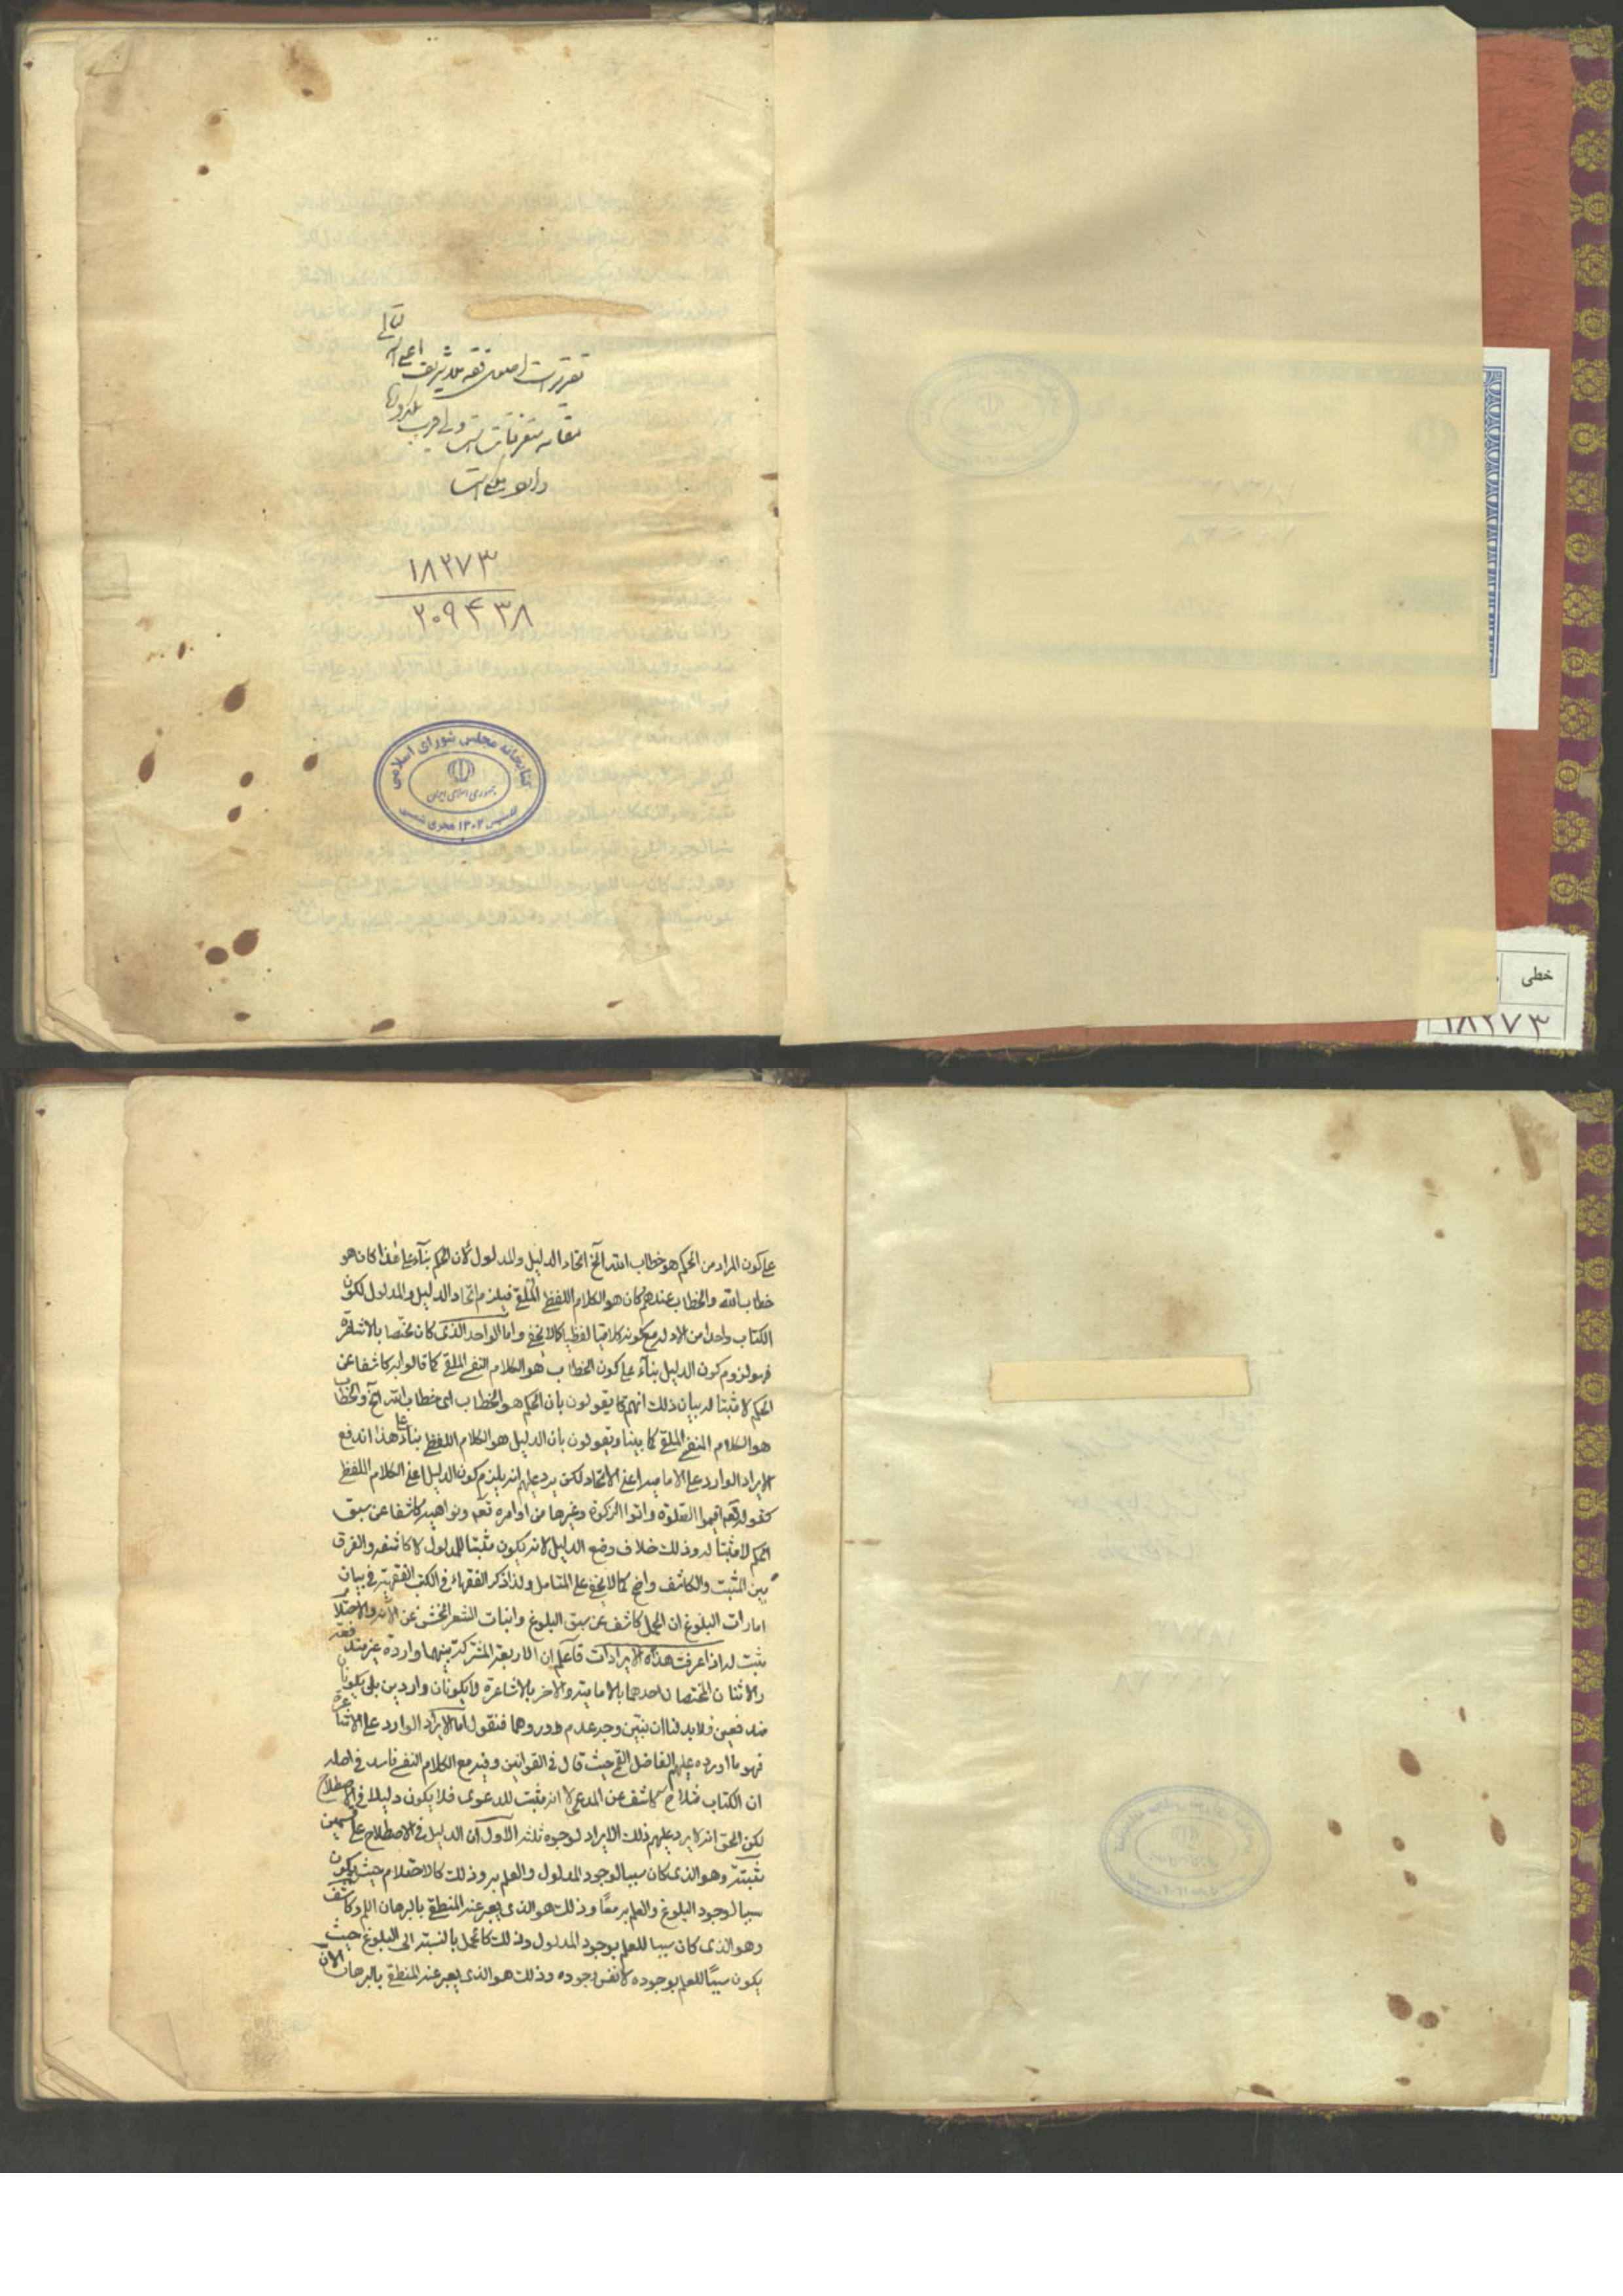 تقریرات اصول فقه ملا شریف اعلی الله
مقامه متفرقات است
و
۱۸۲۷۳
۲۰۹۴۳۸
کتابخانه مجلس شورای اسلامی
جمهوری اسلامی ایران
تاسیس ۱۳۰۲ هجری شمسی
خطی
۱۸۲۷۳
على كون المراد من الحكم هو خطاب الله آلخ اتحاد الدليل والمدلول لان الحكم بنآء على هذا كان هو
خطاب الله والخطاب عندهم كان هو الكلام اللفظى الملقى فيلزم اتحاد الدليل والمدلول لكون
الكتاب واحدا من الادله مع كونه كلاميا لفظيا كما لا يخفى واما الواحد الذى كان مختصا بالاشاعرة
فهو لزوم كون الدليل بنآء على كون الخطاب هو الكلام النفسى الملقى كما قالوا به كاشفا عن
الحكم لا مثبتا له بيان ذلك انهم كما يقولون بان الحكم هو الخطاب اى خطاب الله آلخ والخطاب
هو الكلام النفسى الملقى كما بينا ويقولون بان الدليل هو الكلام اللفظى بناء على هذا اندفع
الايراد الوارد على الاماميه اعنى الاتحاد لكن يرد عليهم انه يلزم كون الدليل اعنى الكلام اللفظى
كقوله تعم اقيموا الصلوة واتوا الزكوة وغيرها من اوامره تعم ونواهيه كاشفا عن سبق
الحكم لا مثبتا له وذلك خلاف وضع الدليل لانه يكون مثبتا للمدلول لا كاشفه والفرق
بين المثبت والكاشف واضح كما لا يخفى على المتامل ولذا ذكر الفقهاء فى الكتب الفقهية فى بيان
امارات البلوغ ان الحمل كاشف عن سبق البلوغ وانبات الشعر الخشن عن الاثر والاحتلام
مثبت له اذا عرفت هذه الايرادات فاعلم ان الاربعة المشتركة بينهما واردة غير مندفعة
والاثنان المختصان احدهما بالاماميه والاخر بالاشاعرة لا يكونان واردين بل يكونان
مندفعين فلا بد لنا ان نبين وجه عدم ورودهما فنقول اما الايراد الوارد على الاشاعرة
فهو ما اورده عليهم الفاضل القمى حيث قال فى القوانين وفيه مع الكلام النفسى فاسد فى اصله
ان الكتاب مثلا ح كاشف عن المدعى لا انه مثبت للدعوى فلا يكون دليلا فى الاصطلاح
لكن الحق انه لا يرد عليهم ذلك الايراد لوجوه ثلثه الاول ان الدليل فى الاصطلاح على قسمين
مثبته وهو الذى كان سببا لوجود المدلول والعلم به وذلك كالاحتلام حيث يكون
سببا لوجود البلوغ والعلم به معًا وذلك هو الذى يعبر عند المنطقى بالبرهان اللم وكاشف
وهو الذى كان سببا للعلم بوجود المدلول وذلك كالحمل بالنسبة الى البلوغ حيث
يكون سببًا للعلم بوجوده لا نفس وجوده وذلك هو الذى يعبر عند المنطقى بالبرهان الان